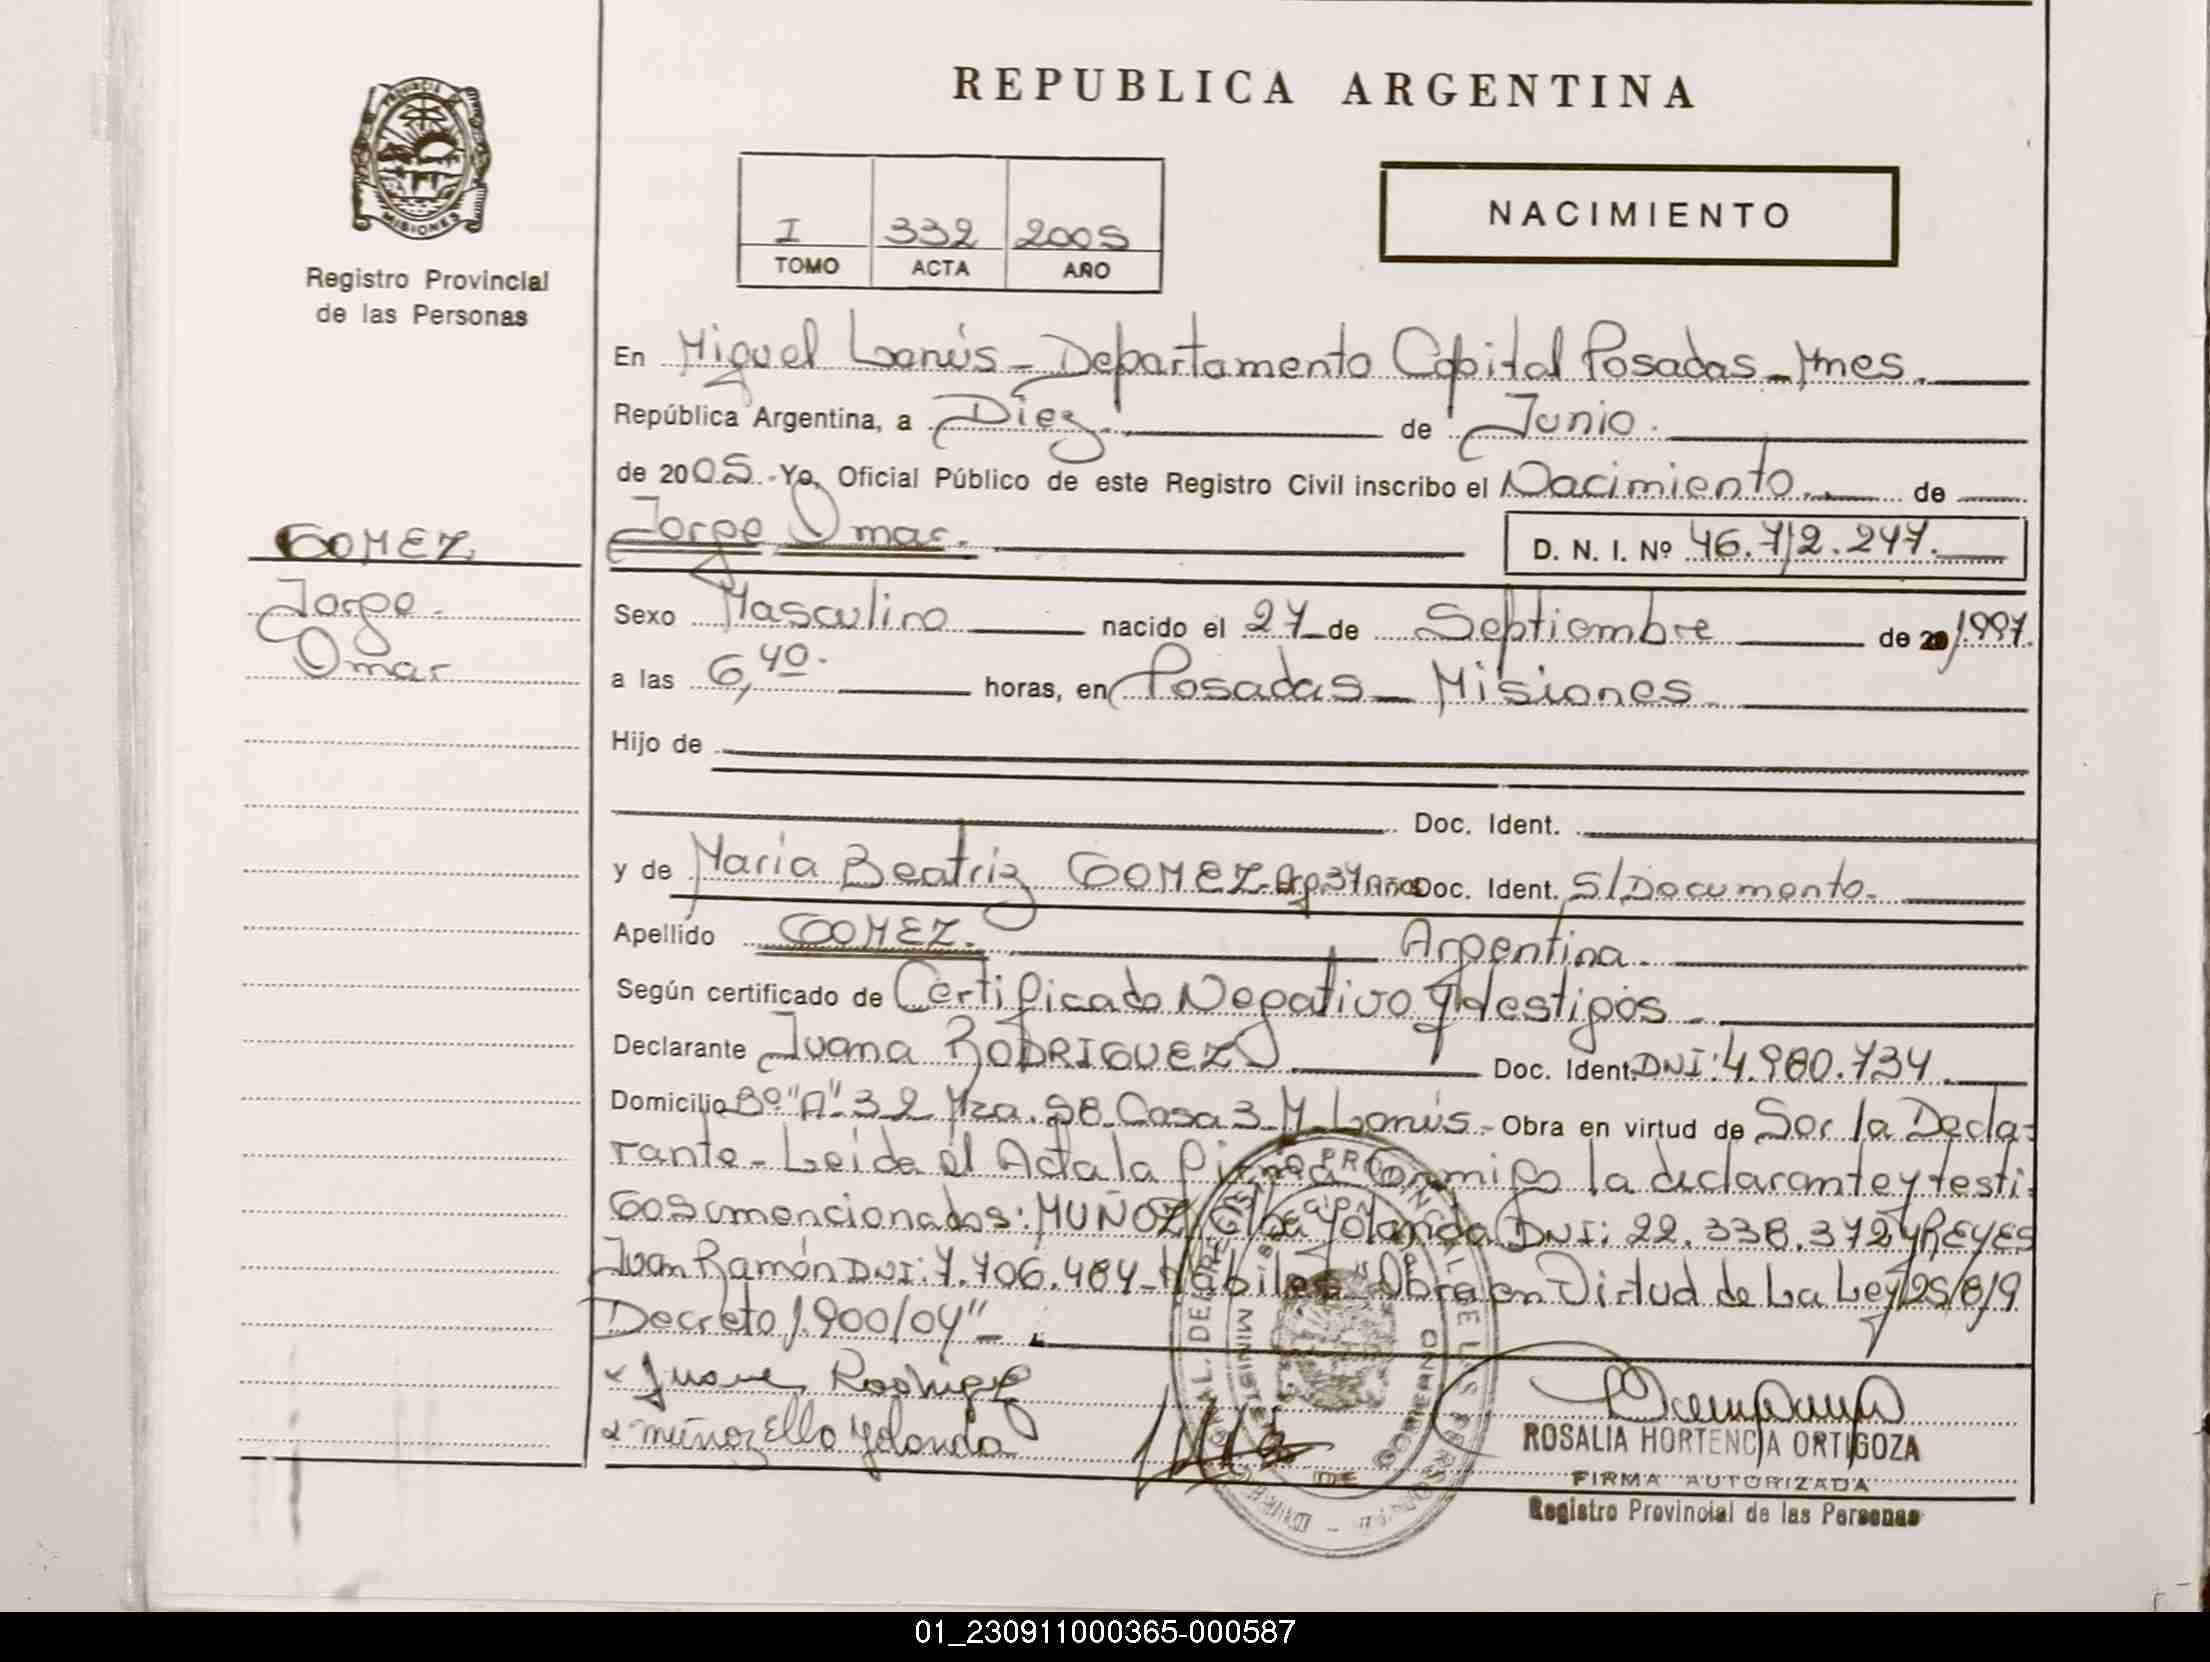 REPUBLICA ARGENTINA
PROVINCIA DE
MISIONES
Registro Provincial
de las Personas
I 332 2005
TOMO ACTA AÑO
NACIMIENTO
En Miguel Lanús - Departamento Capital Posadas - Mnes.
República Argentina, a Diez. de Junio.
de 2005. Yo, Oficial Público de este Registro Civil inscribo el Nacimiento. de
Jorge Omar. D. N. I. Nº 46.712.247.
GOMEZ
Jorge
Omar
Sexo Masculino nacido el 27 de Septiembre de 20 1.997.
a las 6,40. horas, en Posadas - Misiones
Hijo de
Doc. Ident.
y de Maria Beatriz GOMEZ. Arg. 37 Años Doc. Ident. S/Documento.
Apellido GOMEZ. Argentina.
Según certificado de Certificado Negativo y testigos
Declarante Juana RODRIGUEZ Doc. Ident. DNI: 4.980.734.
Domicilio Bº "A" 32 Mza. 28 Casa 3 M Lanús - Obra en virtud de Ser la Decla-
rante - Leida el Acta la firma conmigo la declarante y testi-
gos mencionados: MUÑOZ Elba Yolanda DNI: 22.338.372 y REYES
Juan Ramón DNI: 7.706.484 - Habiles "Obra en Virtud de La Ley 25819
Decreto 1.900/04" -
Juana Rodriguez
Muñoz Yolanda
ROSALIA HORTENCIA ORTIGOZA
FIRMA AUTORIZADA
Registro Provincial de las Personas
01_230911000365-000587